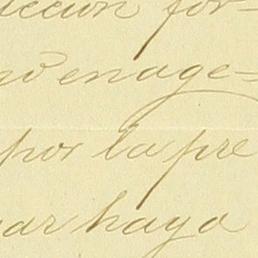 ccion for-
no enage-
por la pre
ar haya